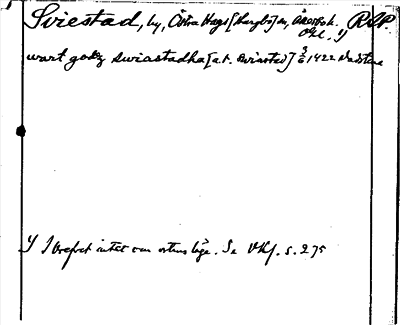 Sviestad, by, Östra Hargs [Skugbs] sn, Åkerbo h. RAP.
Ögl. 1)
wart gotz swiastadha [at. Sviastad] 3/6 1422 Vadstena
1) I brefvet intet om ortens läge. Se VKJ. s. 275